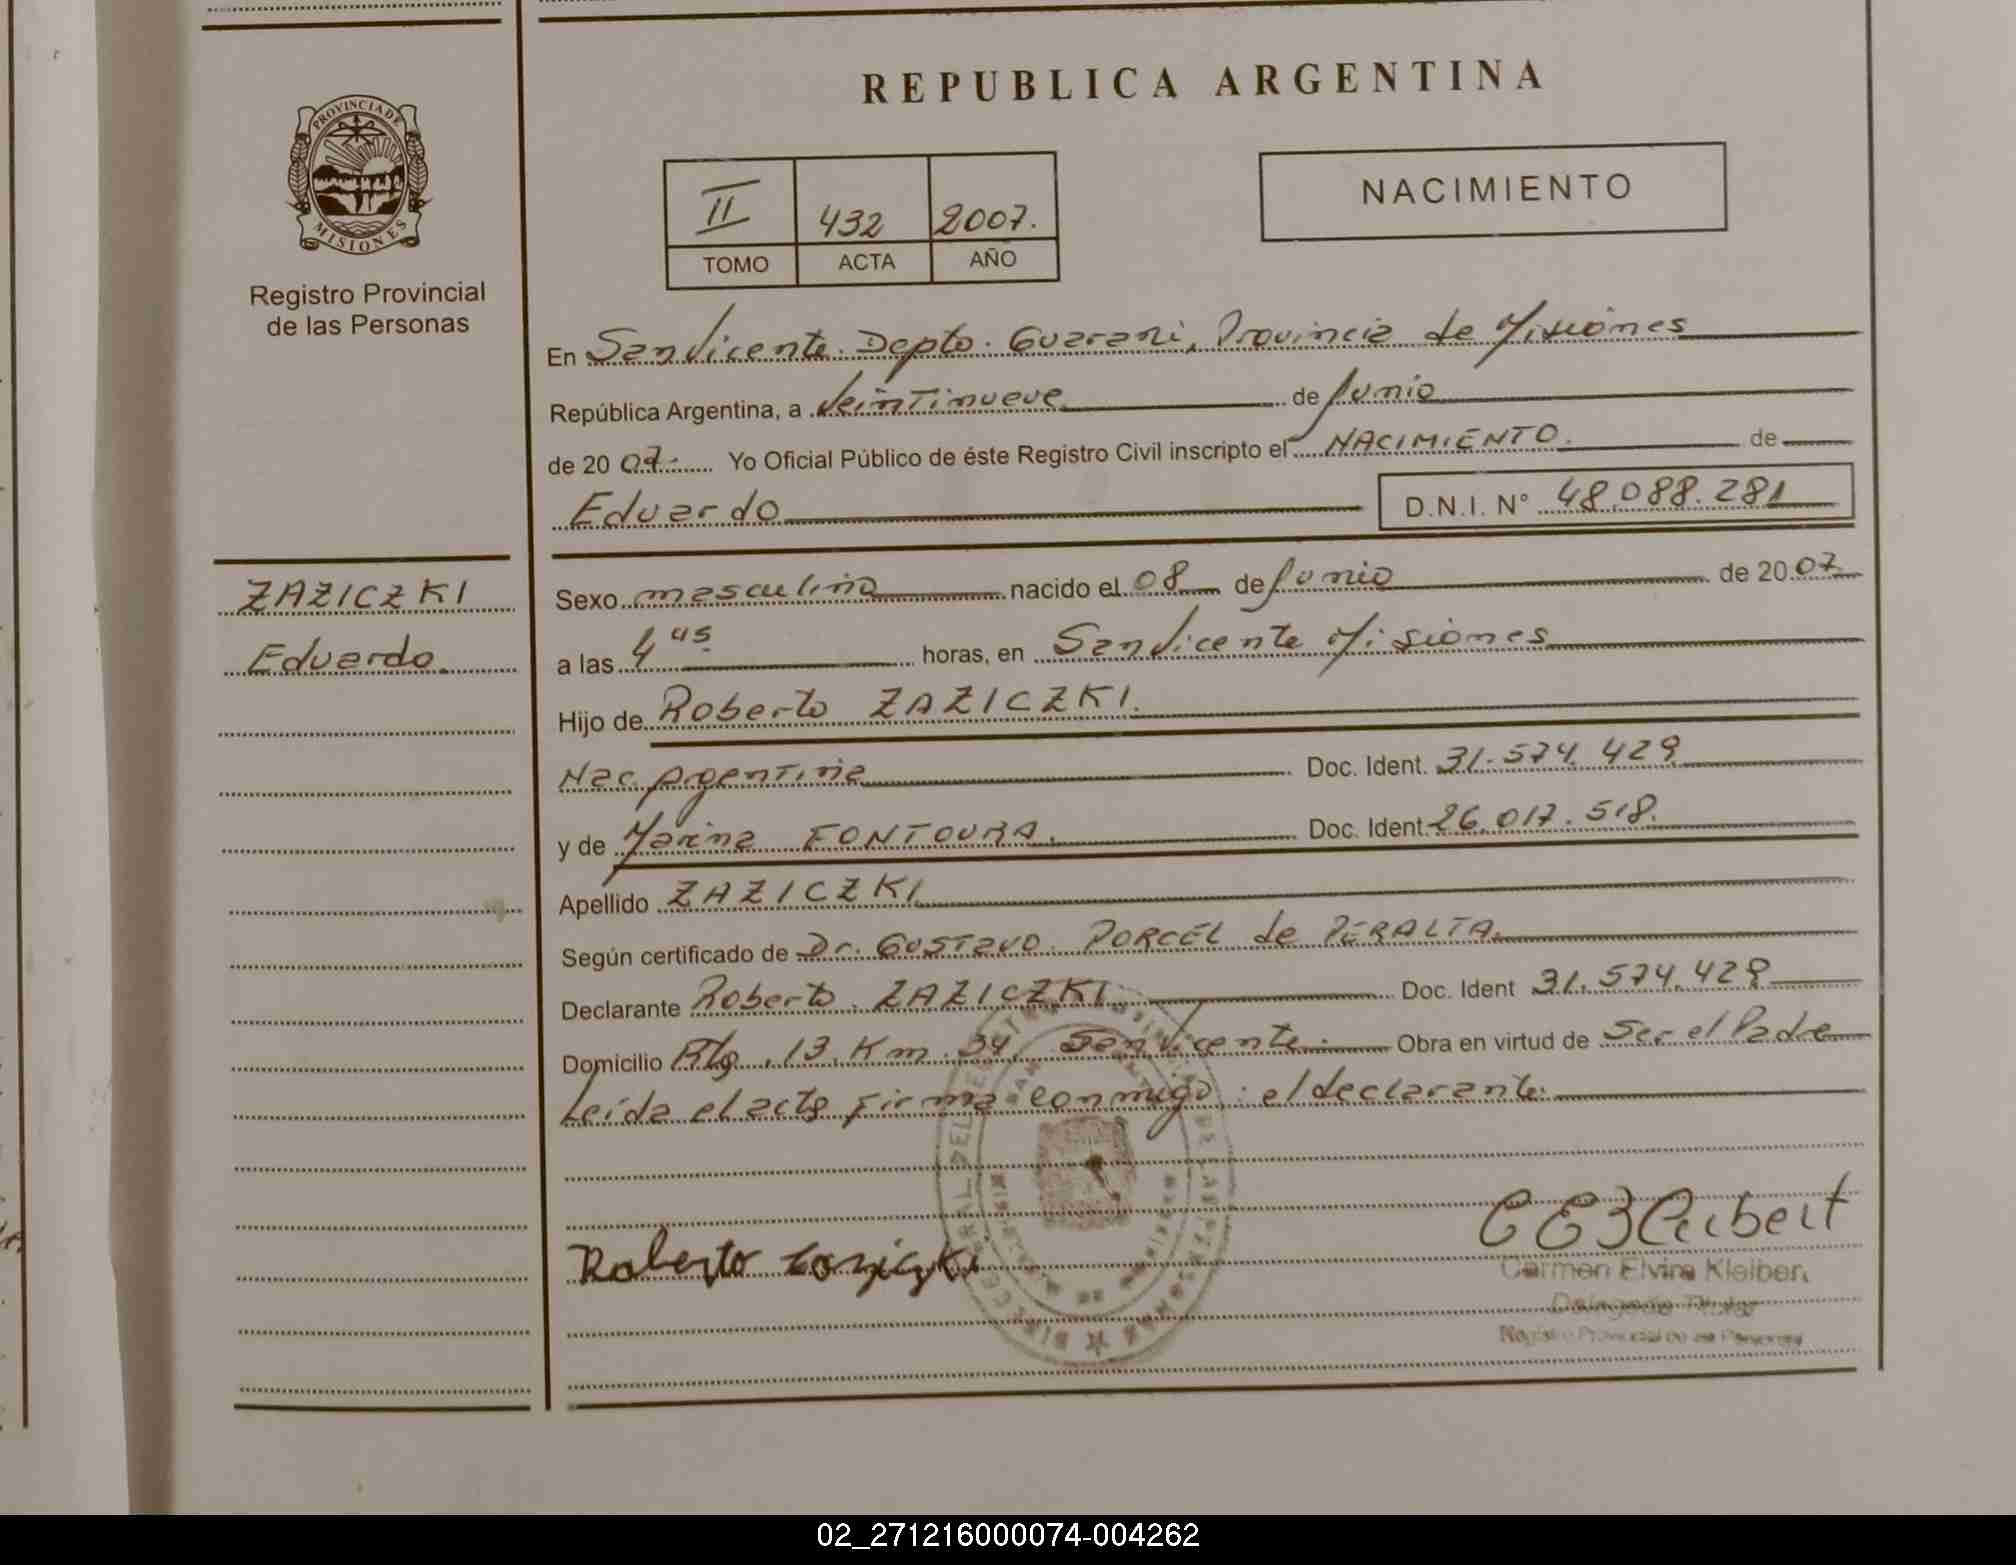 PROVINCIA DE
MISIONES
Registro Provincial
de las Personas
ZAZICZKI
Eduardo.
REPUBLICA ARGENTINA
II 432 2007.
TOMO ACTA AÑO
NACIMIENTO
En San Vicente. Depto. Guarani, Provincia de Misiones
República Argentina, a Veintinueve de Junio
de 20 07. Yo Oficial Público de éste Registro Civil inscripto el NACIMIENTO. de
Eduardo D.N.I. N° 48.088.281
Sexo masculino nacido el 08 de Junio de 20 07
a las 4 as. horas, en San Vicente Misiones
Hijo de Roberto ZAZICZKI.
Nac. Argentina Doc. Ident. 31.574.429
y de Marina FONTOURA. Doc. Ident. 26.017.518.
Apellido ZAZICZKI
Según certificado de Dr. Gustavo. PORCEL de PERALTA.
Declarante Roberto. ZAZICZKI. Doc. Ident 31.574.429
Domicilio Rta. 13. Km. 34. San Vicente. Obra en virtud de Ser el Padre
Leída el acta firma conmigo: el declarante.
Roberto Zaziczki
Carmen Elvira Kleibert
Delegado Titular
Registro Provincial de las Personas
02_271216000074-004262